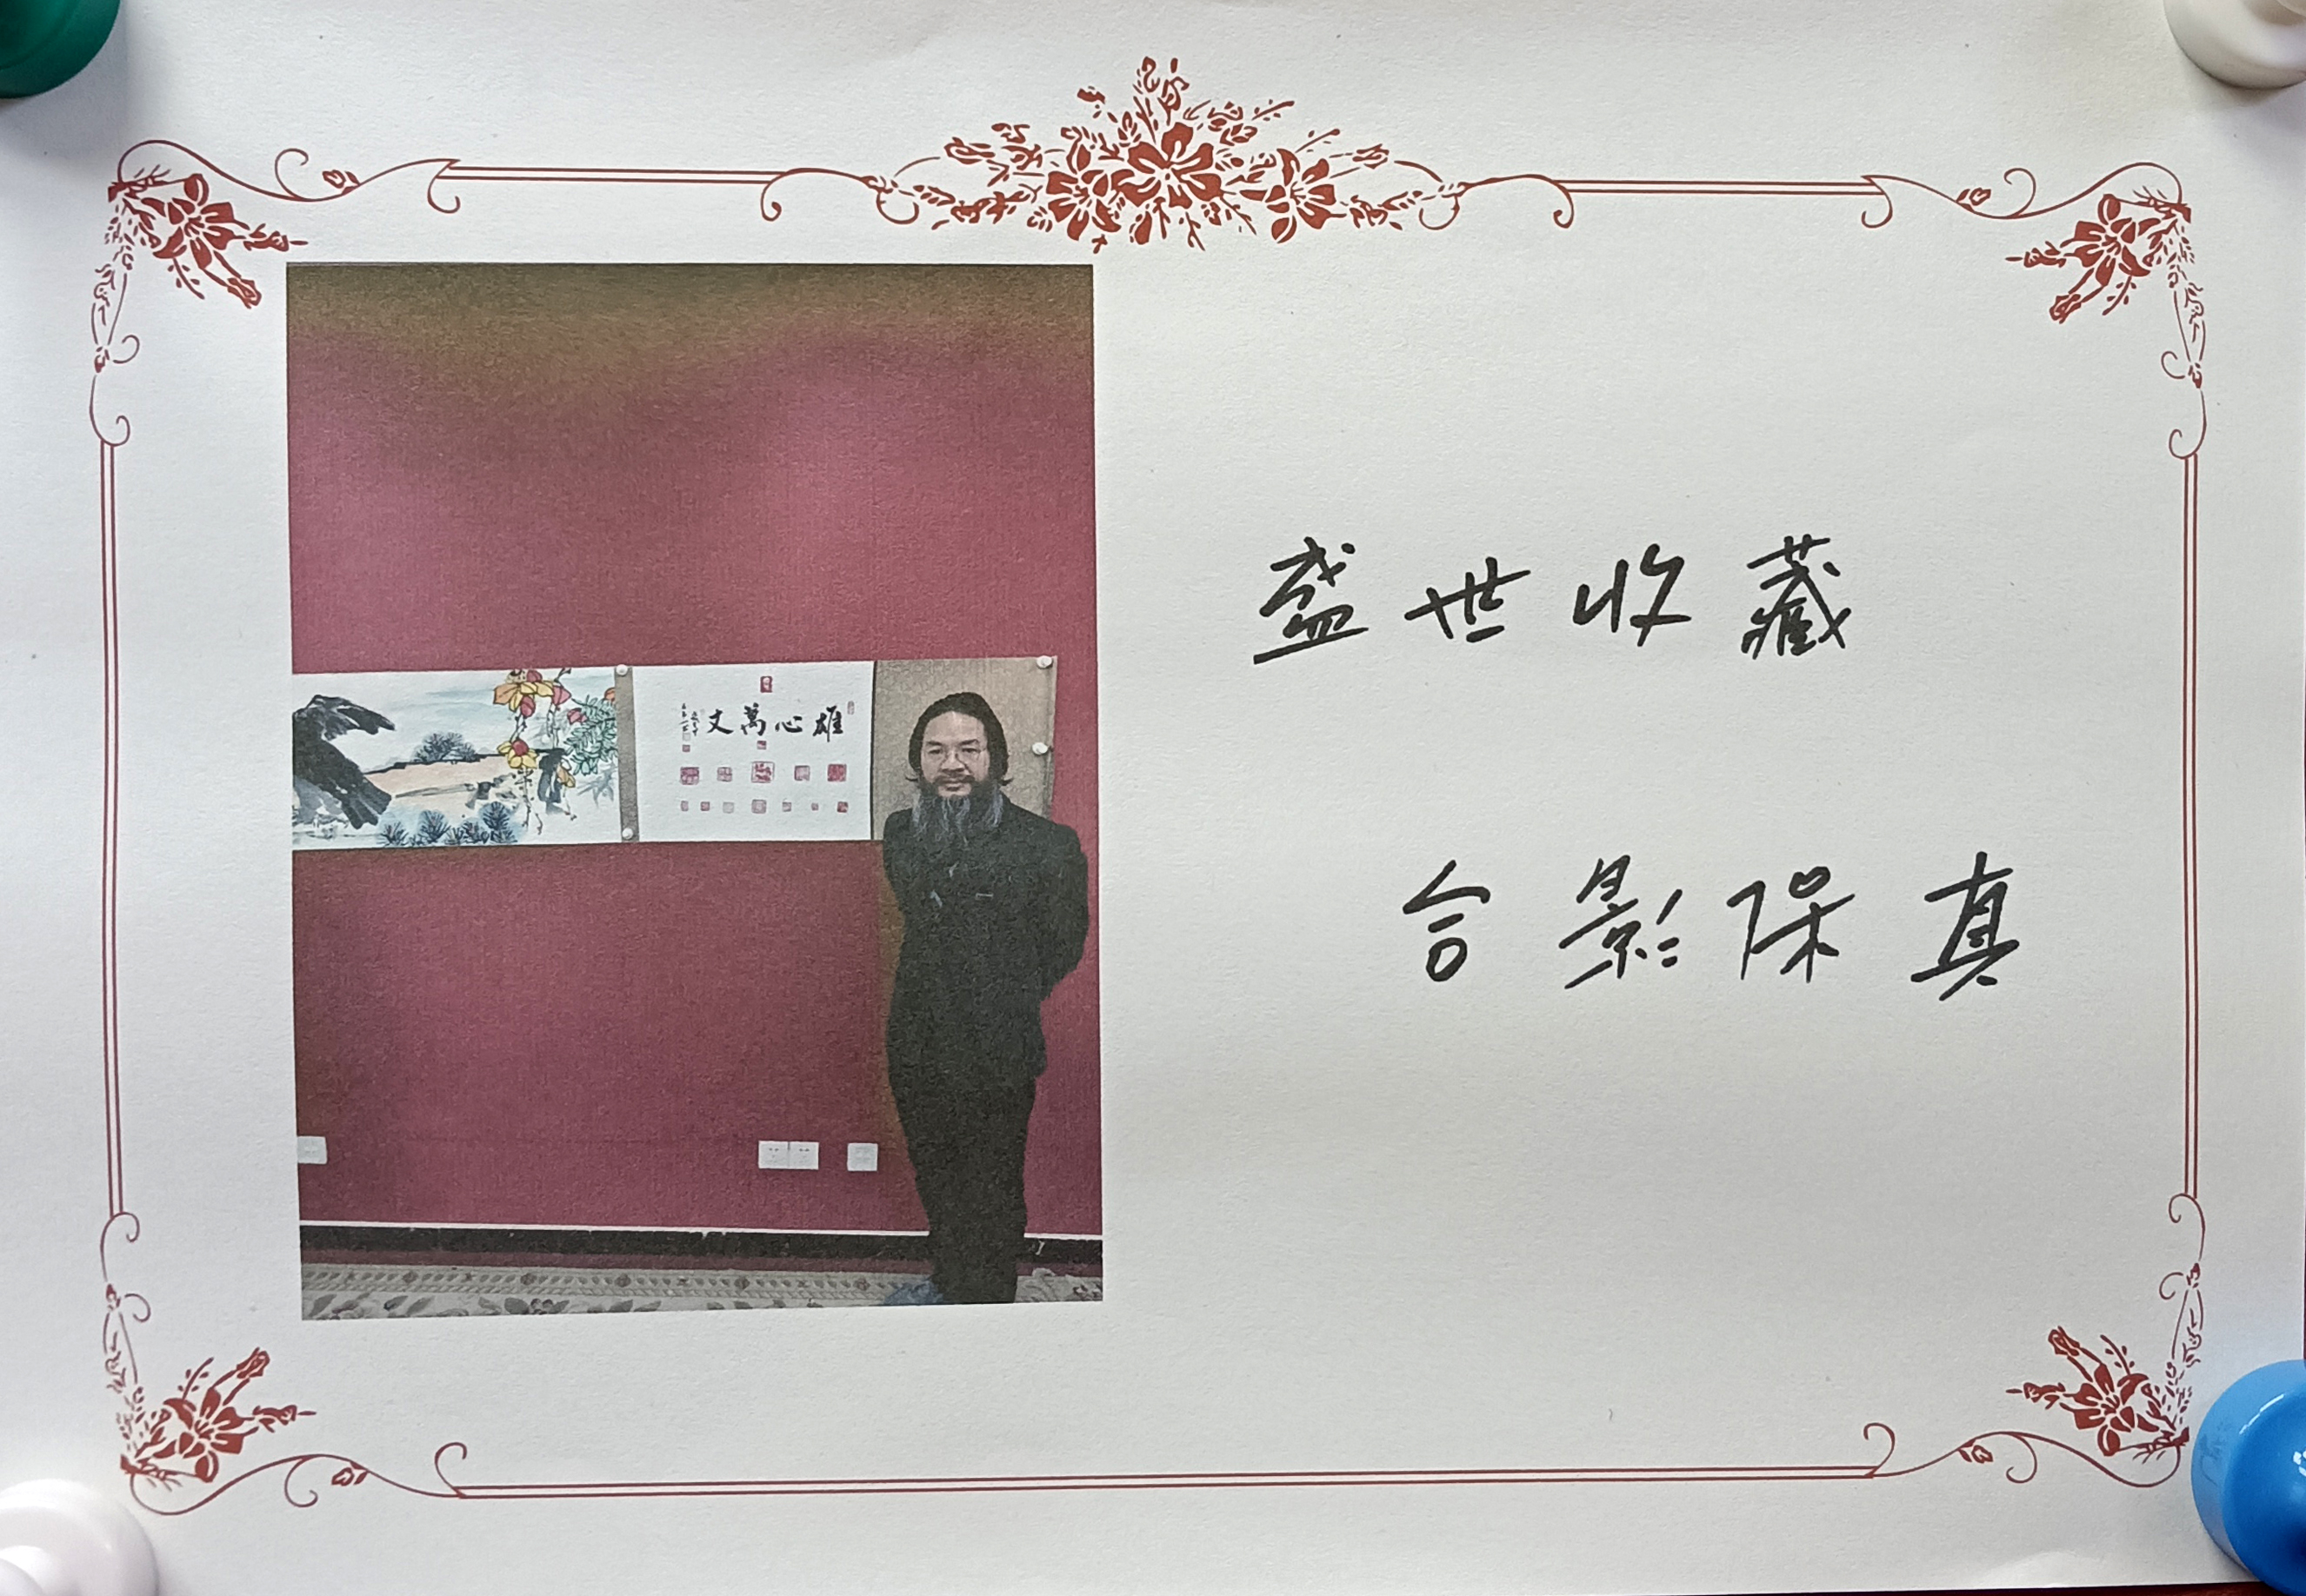 雄心萬丈
盛世收藏
合影保真